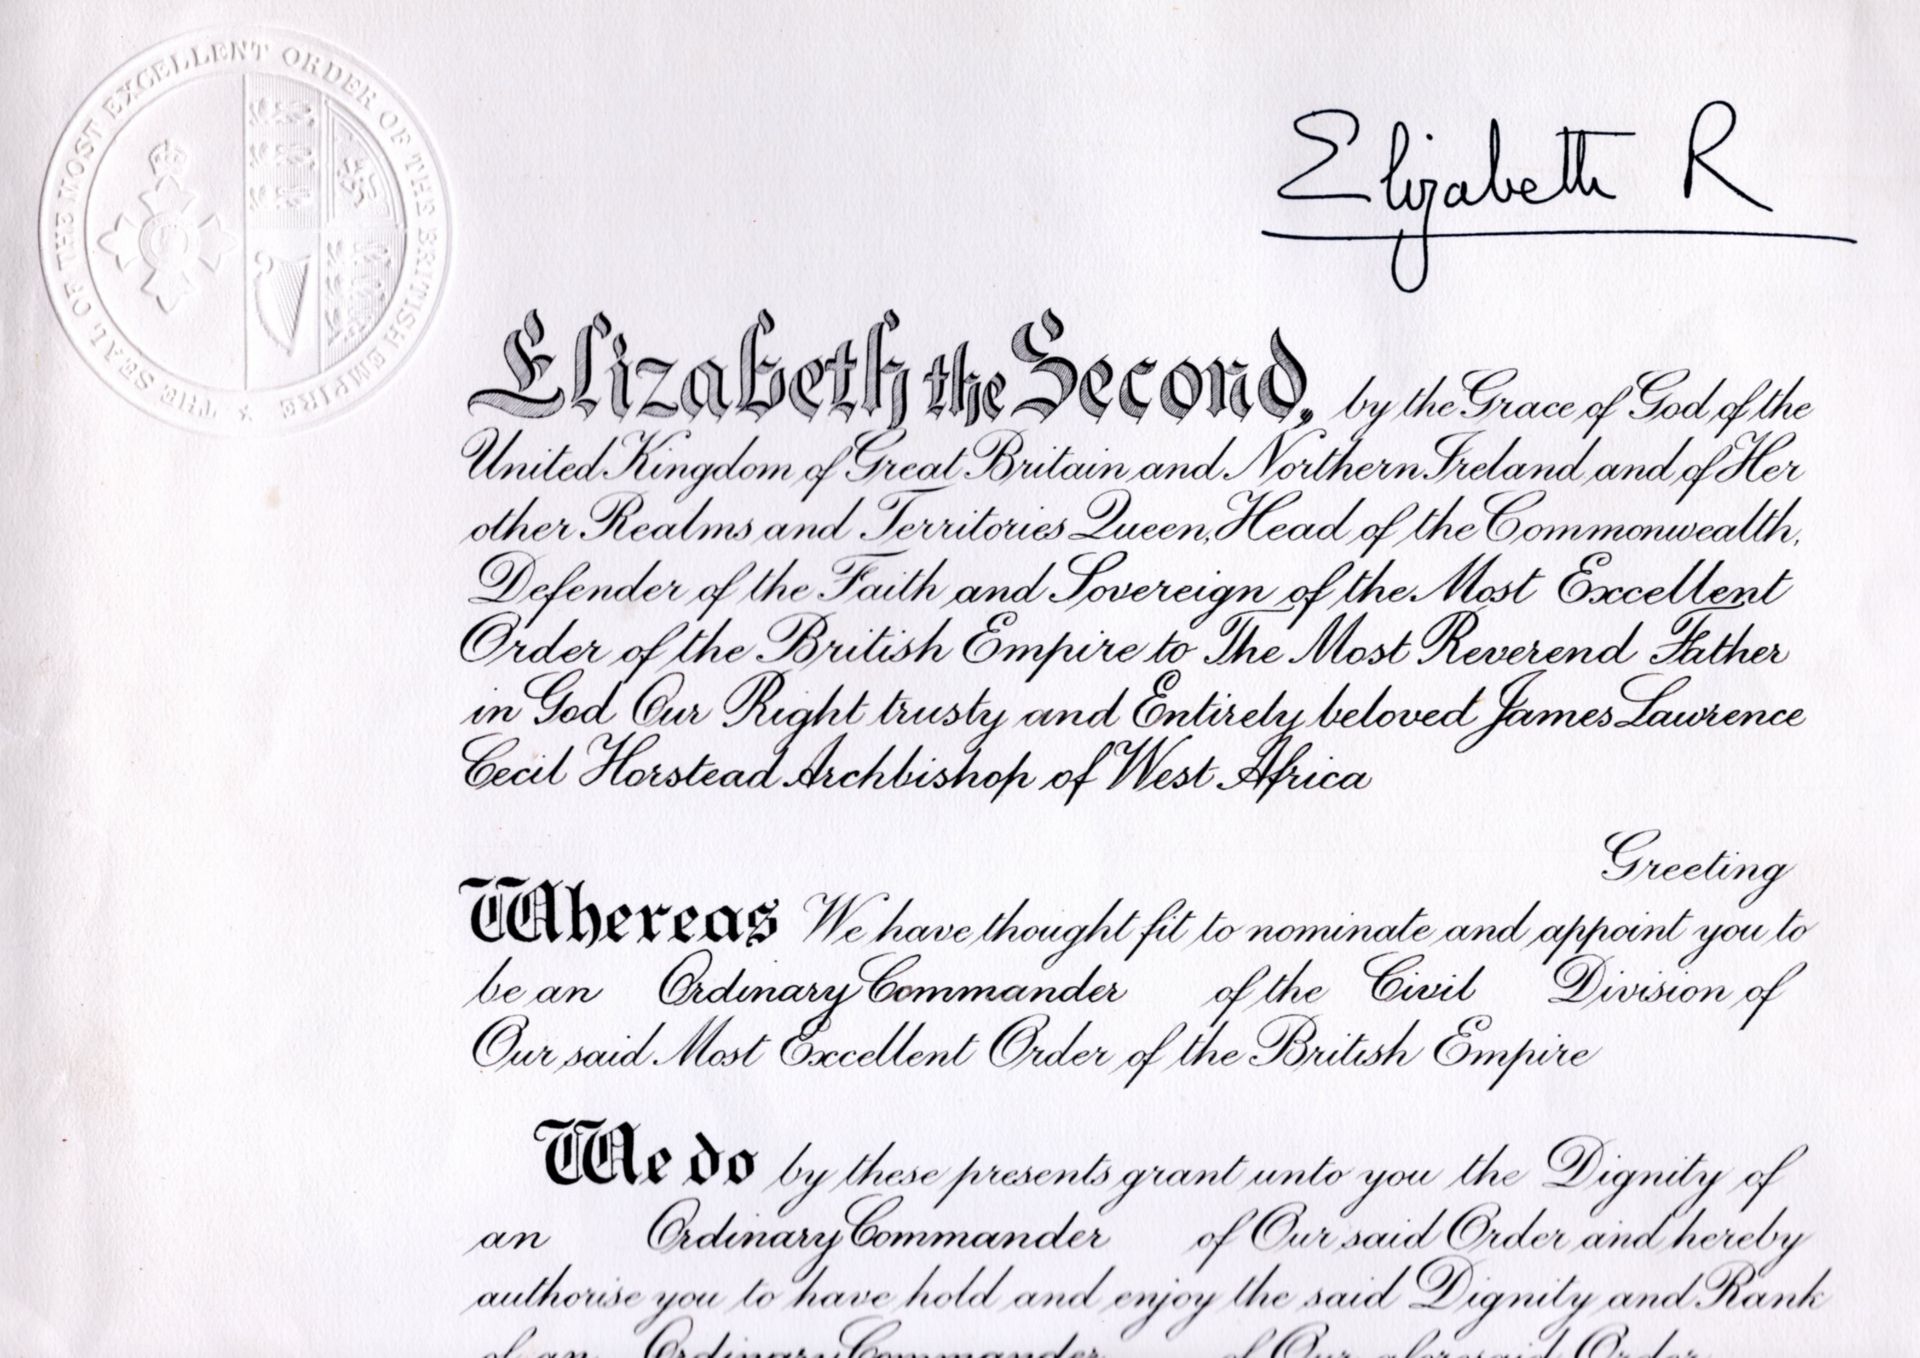 THE SEAL OF THE MOST EXCELLENT ORDER OF THE BRITISH EMPIRE
Elizabeth R
Elizabeth the Second, by the Grace of God of the
United Kingdom of Great Britain and Northern Ireland and of Her
other Realms and Territories Queen, Head of the Commonwealth,
Defender of the Faith and Sovereign of the Most Excellent
Order of the British Empire to The Most Reverend Father
in God Our Right trusty and Entirely beloved James Lawrence
Cecil Horstead Archbishop of West Africa
Greeting
Whereas We have thought fit to nominate and appoint you to
be an Ordinary Commander of the Civil Division of
Our said Most Excellent Order of the British Empire
We do by these presents grant unto you the Dignity of
an Ordinary Commander of Our said Order and hereby
authorise you to have hold and enjoy the said Dignity and Rank
of an Ordinary Commander of Our aforesaid Order